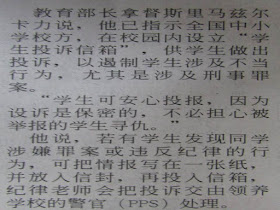 教育部长拿督斯里马兹尔
卡力说，他已指示全国中小
学校方，在校园内设立“学
生投诉信箱”，供学生做出
投诉，以遏制学生涉及不当
行为，尤其是涉及刑事罪
案。
“学生可安心投报，因为
投诉是保密的，不必担心被
举报的学生寻仇。”
他说，若有学生发现同学
涉嫌罪案或违反纪律的行
为，可把情报写在一张纸，
并放入信封，再投入信箱，
纪律老师会把投诉交由领养
学校的警官（PPS）处理。